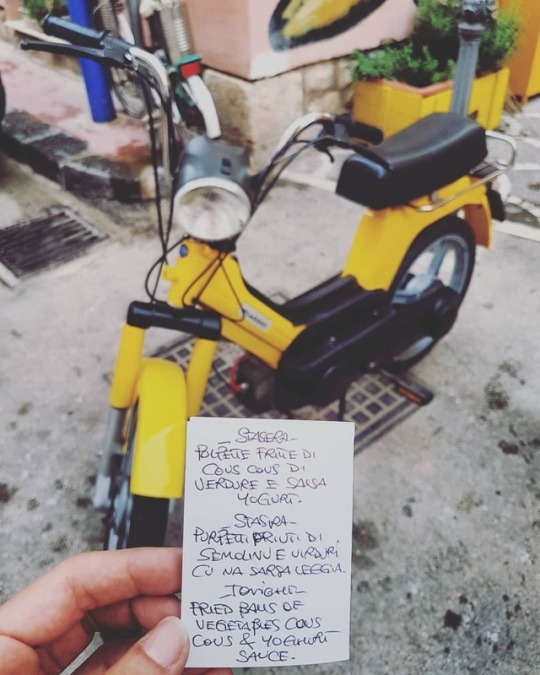 - STASERA -
POLPETTE FRITTE DI
COUS COUS DI
VERDURE E SALSA
YOGURT.
- STASIRA -
PURPETTI FRIUTI DI
SEMOLINU E VIRDURI
CU NA SARSA LEGGIA.
- TONIGHT -
FRIED BALLS OF
VEGETABLES COUS
COUS & YOGHURT
SAUCE.